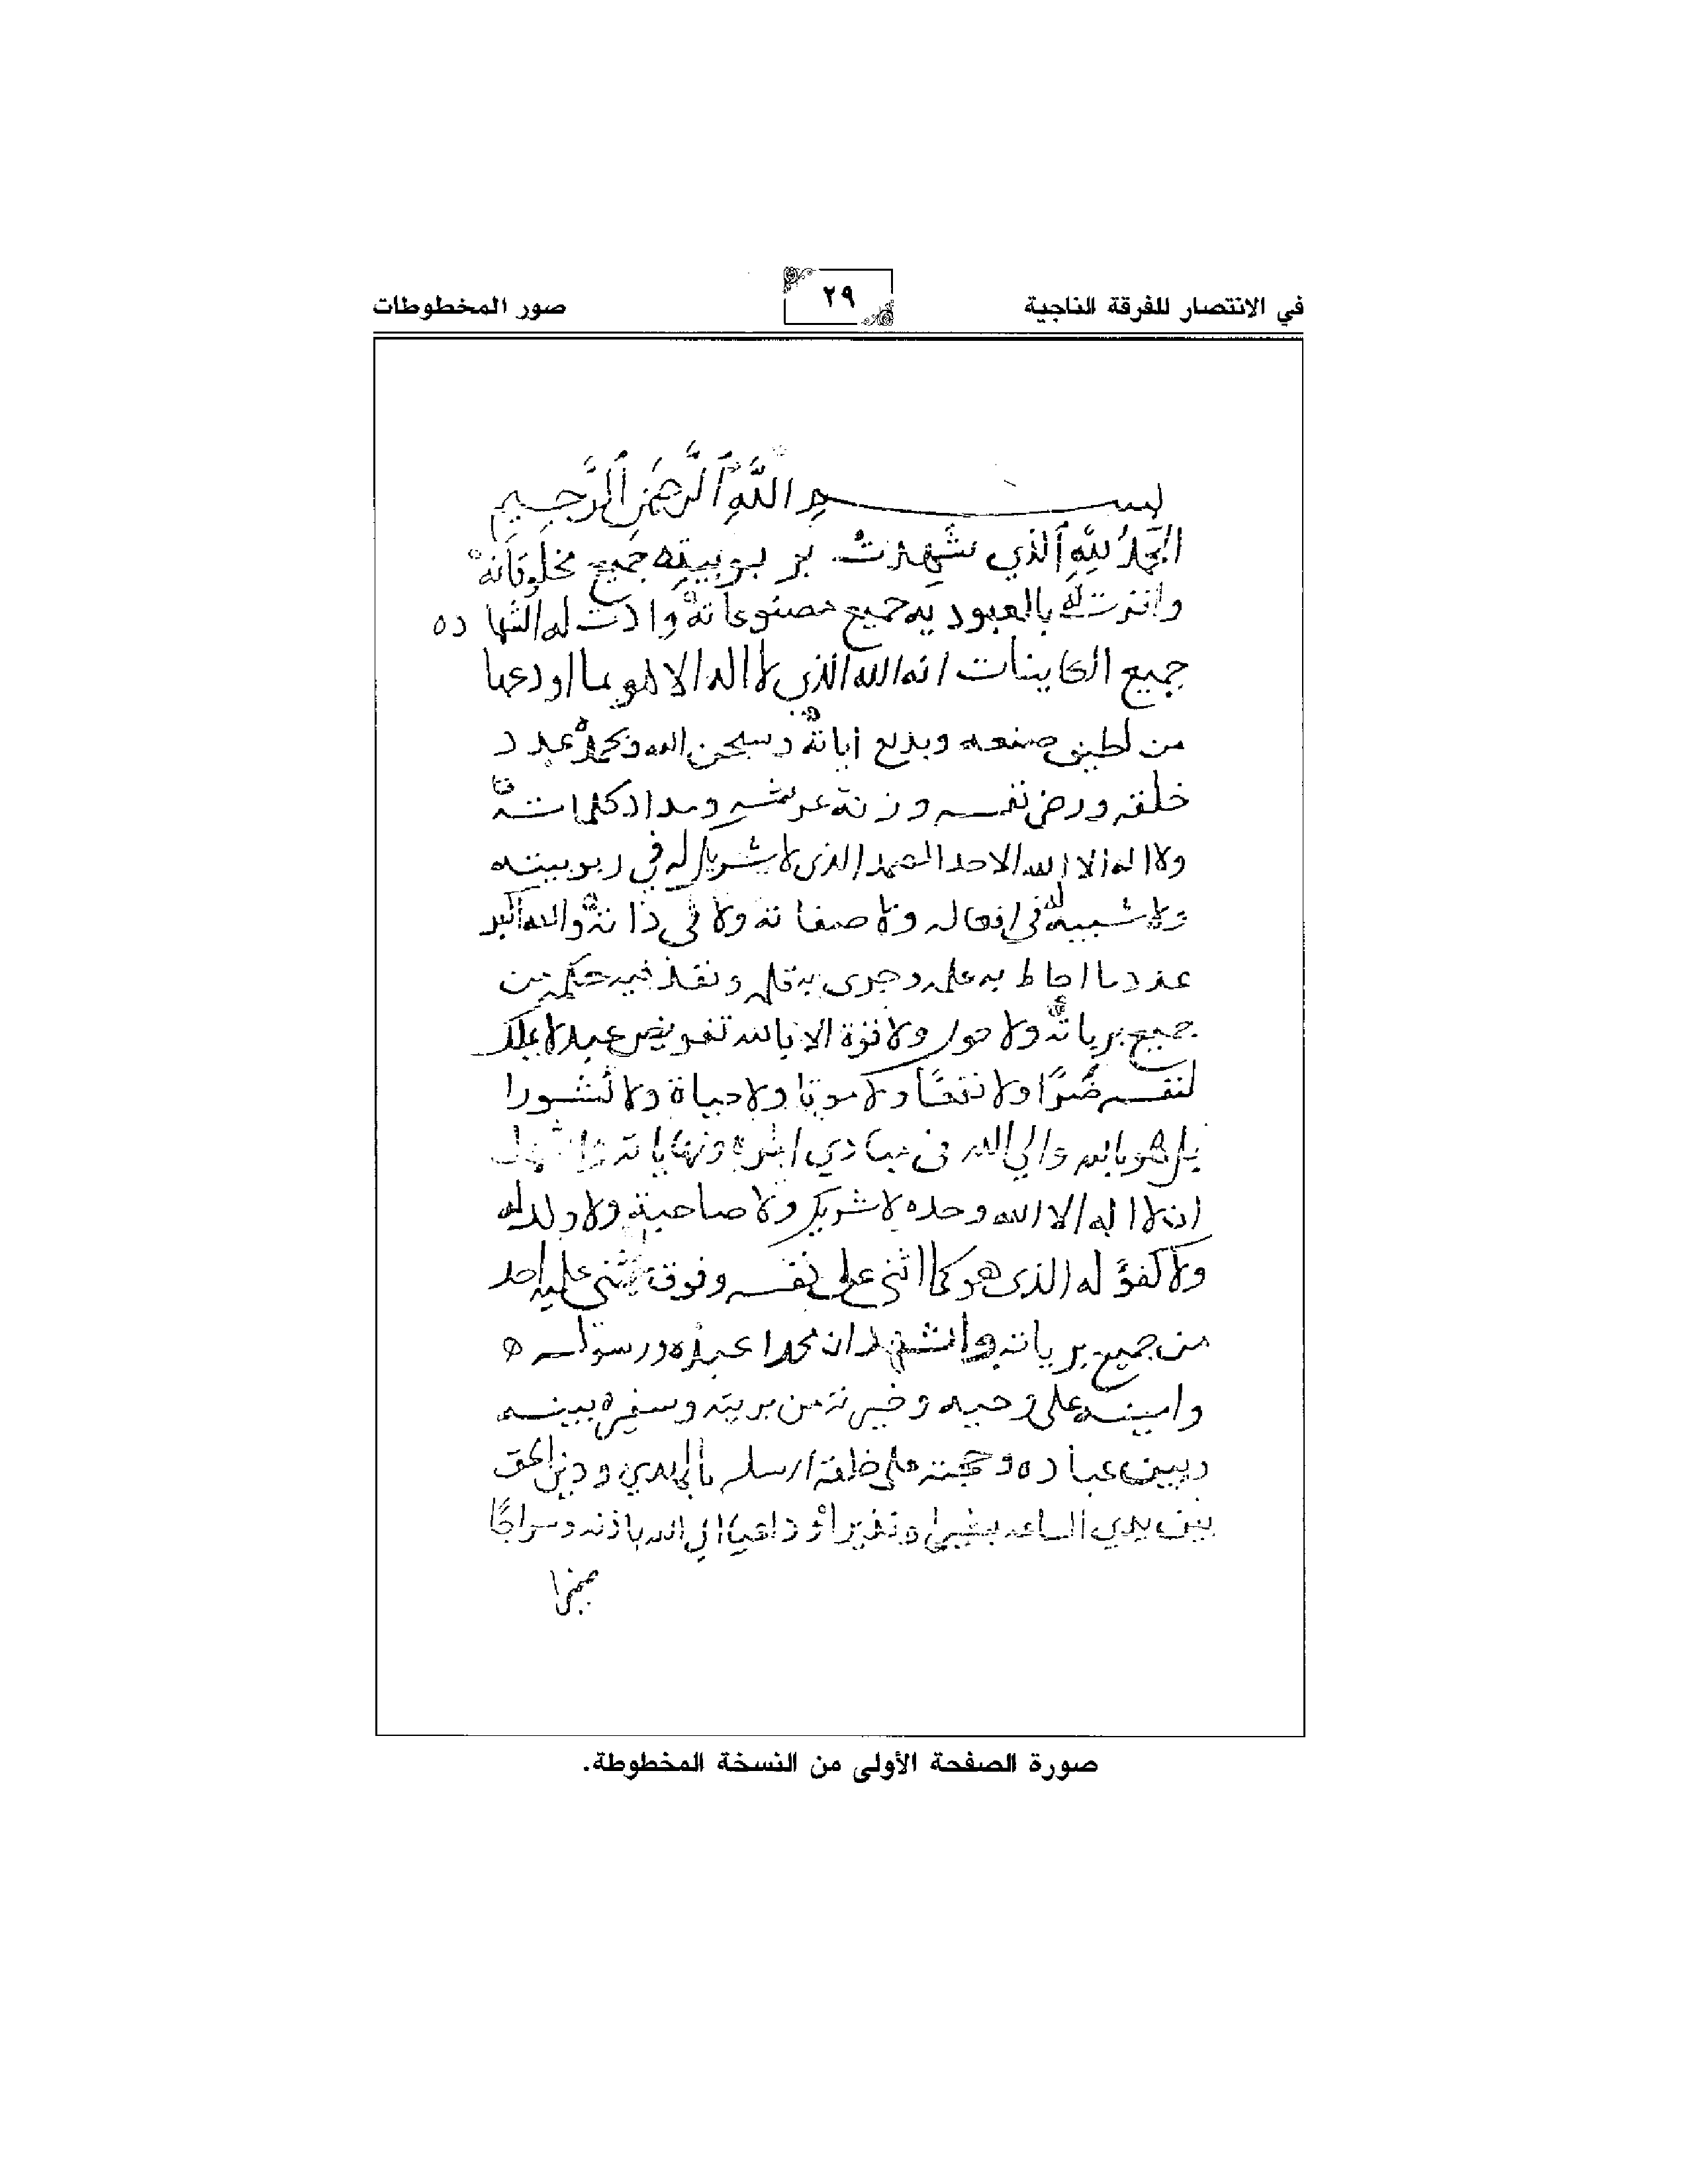 في الانتصار للفرقة الناجية
٢٩
صور المخطوطات
بسم اللَّهِ الرَّحمَنِ الرَّجيم
الحمدُ للَّهِ الذي شهدت بربوبيته جميع مخلوقاته
واقرت له بالعبوديه جميع مصنوعاته وادت له الشهاده
جميع الكاينات انه الله الذي لا اله الا هو بما اودعها
من لطيف صنعه وبديع اياته وسبحن الله وبحمده عدد
خلقه ورضى نفسه وزنة عرشه ومداد كلماته
ولا اله الا الله الاحد الصمد الذي لا شريك له في ربوبيته
ولا شبيه له في افعاله ولا صفاته ولا في ذاته والله اكبر
عدد ما احاط به علمه وجرى به قلمه ونفذ فيه حكمه من
جميع برياته ولا حول ولا قوة الا بالله تفويض عبد لا يملك
لنفسه ضَرًا ولا نفعًا ولا موتا ولا حياة ولا نُشورا
بل هو بالله والي الله في مبادي امره ونهاياته واشهد
ان لا اله الا الله وحده لا شريك ولا صاحبة ولا ولد له
ولا كفؤ له الذي هو كما اثنى على نفسه وفوق يثني عليه احد
من جميع برياته واشهد ان محمدا عبده ورسوله
وامينه على وحيه وخيرته من بريته وسفيره بينه
وبين عباده وحجته على خلقه ارسله بالهدي ودين الحق
بين يدي الساعه بشيرا ونذيرا وداعيا الي الله باذنه وسراجًا
منيرا
صورة الصفحة الأولى من النسخة المخطوطة.